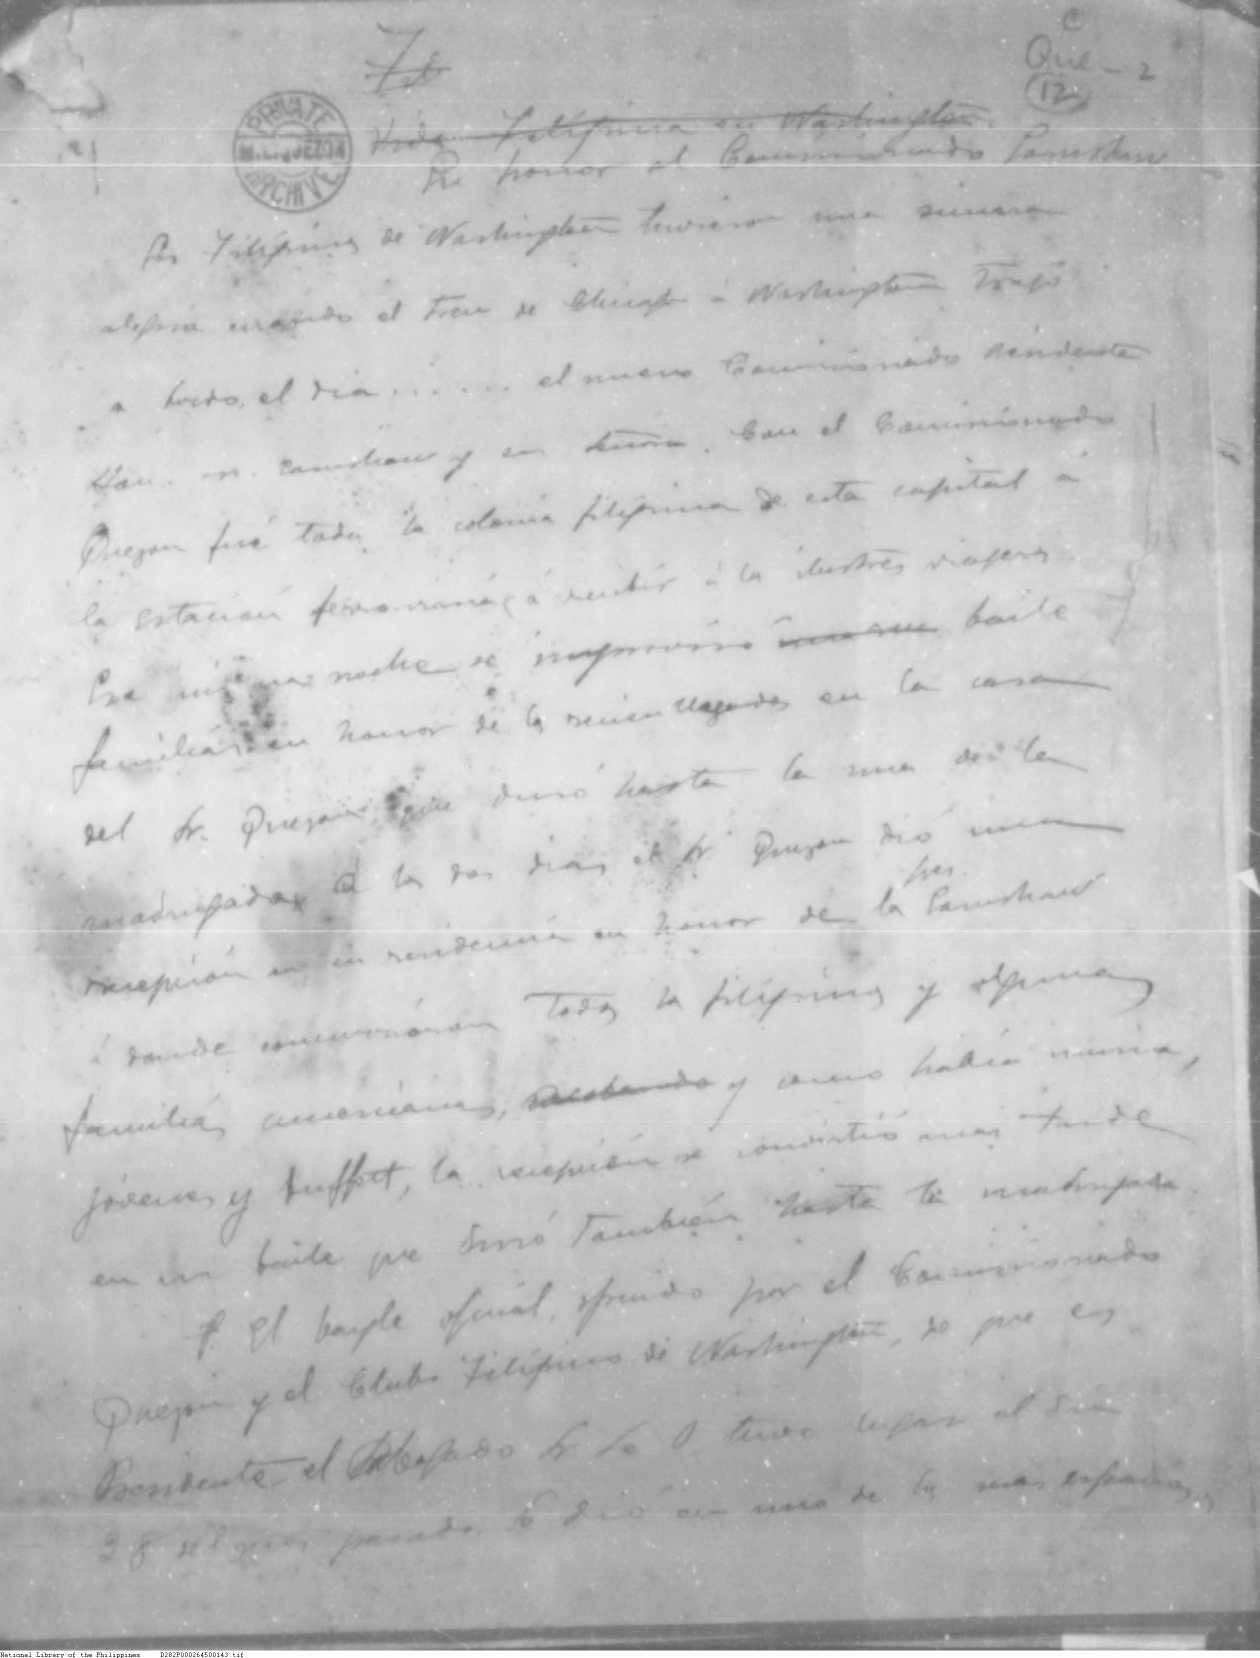 C
Que - 2
12
Feb
PRIVATE
M. L. QUEZON
ARCHIVE
Vida Filipina en Washington.
En honor al Comisionado Earnshaw
Los Filipinos de Washington tuvieron una sincera
alegria cuando el tren de Chicago á Washington trajó
a bordo, el dia ...... el nuevo Comisionado Residente
Hon. M. Earnshaw y su Señora. Con el Comisionado
Quezon fué toda la colonia filipina de esta capital á
la estación ferroviaria, á recibir á los ilustres viajeros
Esa misma noche se improvisó baile
familiar en honor de los recien llegados en la casa
del Sr. Quezon que duró hasta la una de la
madrugada. A los dos dias el Sr. Quezon dió una
recepción en su residencia en honor de los Sres. Earnshaw
á donde concurrieron todos los filipinos y algunas
familias americanas, y como había musica,
jóvenes y buffet, la recepción se convirtió mas tarde
en un baile que duró también hasta la madrugada.
P. El bayle oficial, ofrecido por el Comisionado
Quezon y el Club Filipino de Washington, de que es
Presidente el Abogado Sr. tuvo lugar el dia
28 del mes pasado. Se dió en uno de los mas
National Library of the Philippines D282P000264500143.tif